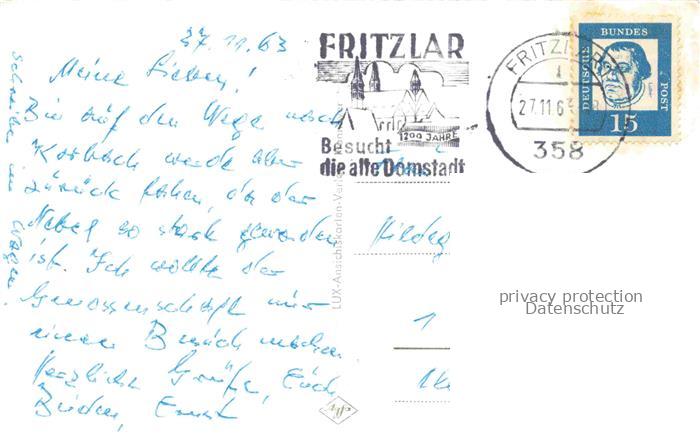 27.11.63
Meine Lieben!
Bin auf dem Wege nach
Korbach werde aber
zurück fahren, da der
Nebel so stark geworden
ist. Ich wollte der
Genossenschaft nur
einen Besuch machen.
Herzliche Grüße, Euch
Beiden, Ernst
schreibe im Wagen.
FRITZLAR
1200 JAHRE
Besucht
die alte Domstadt
FRITZLAR
27.11.63
358
DEUTSCHE BUNDES POST
15
LUX-Ansichtskarten-Verl
Hildeg
1
privacy protection
Datenschutz